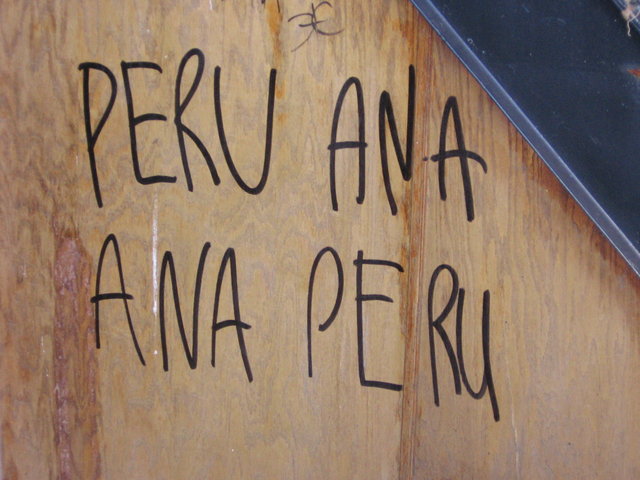 PERU ANA
ANA PERU